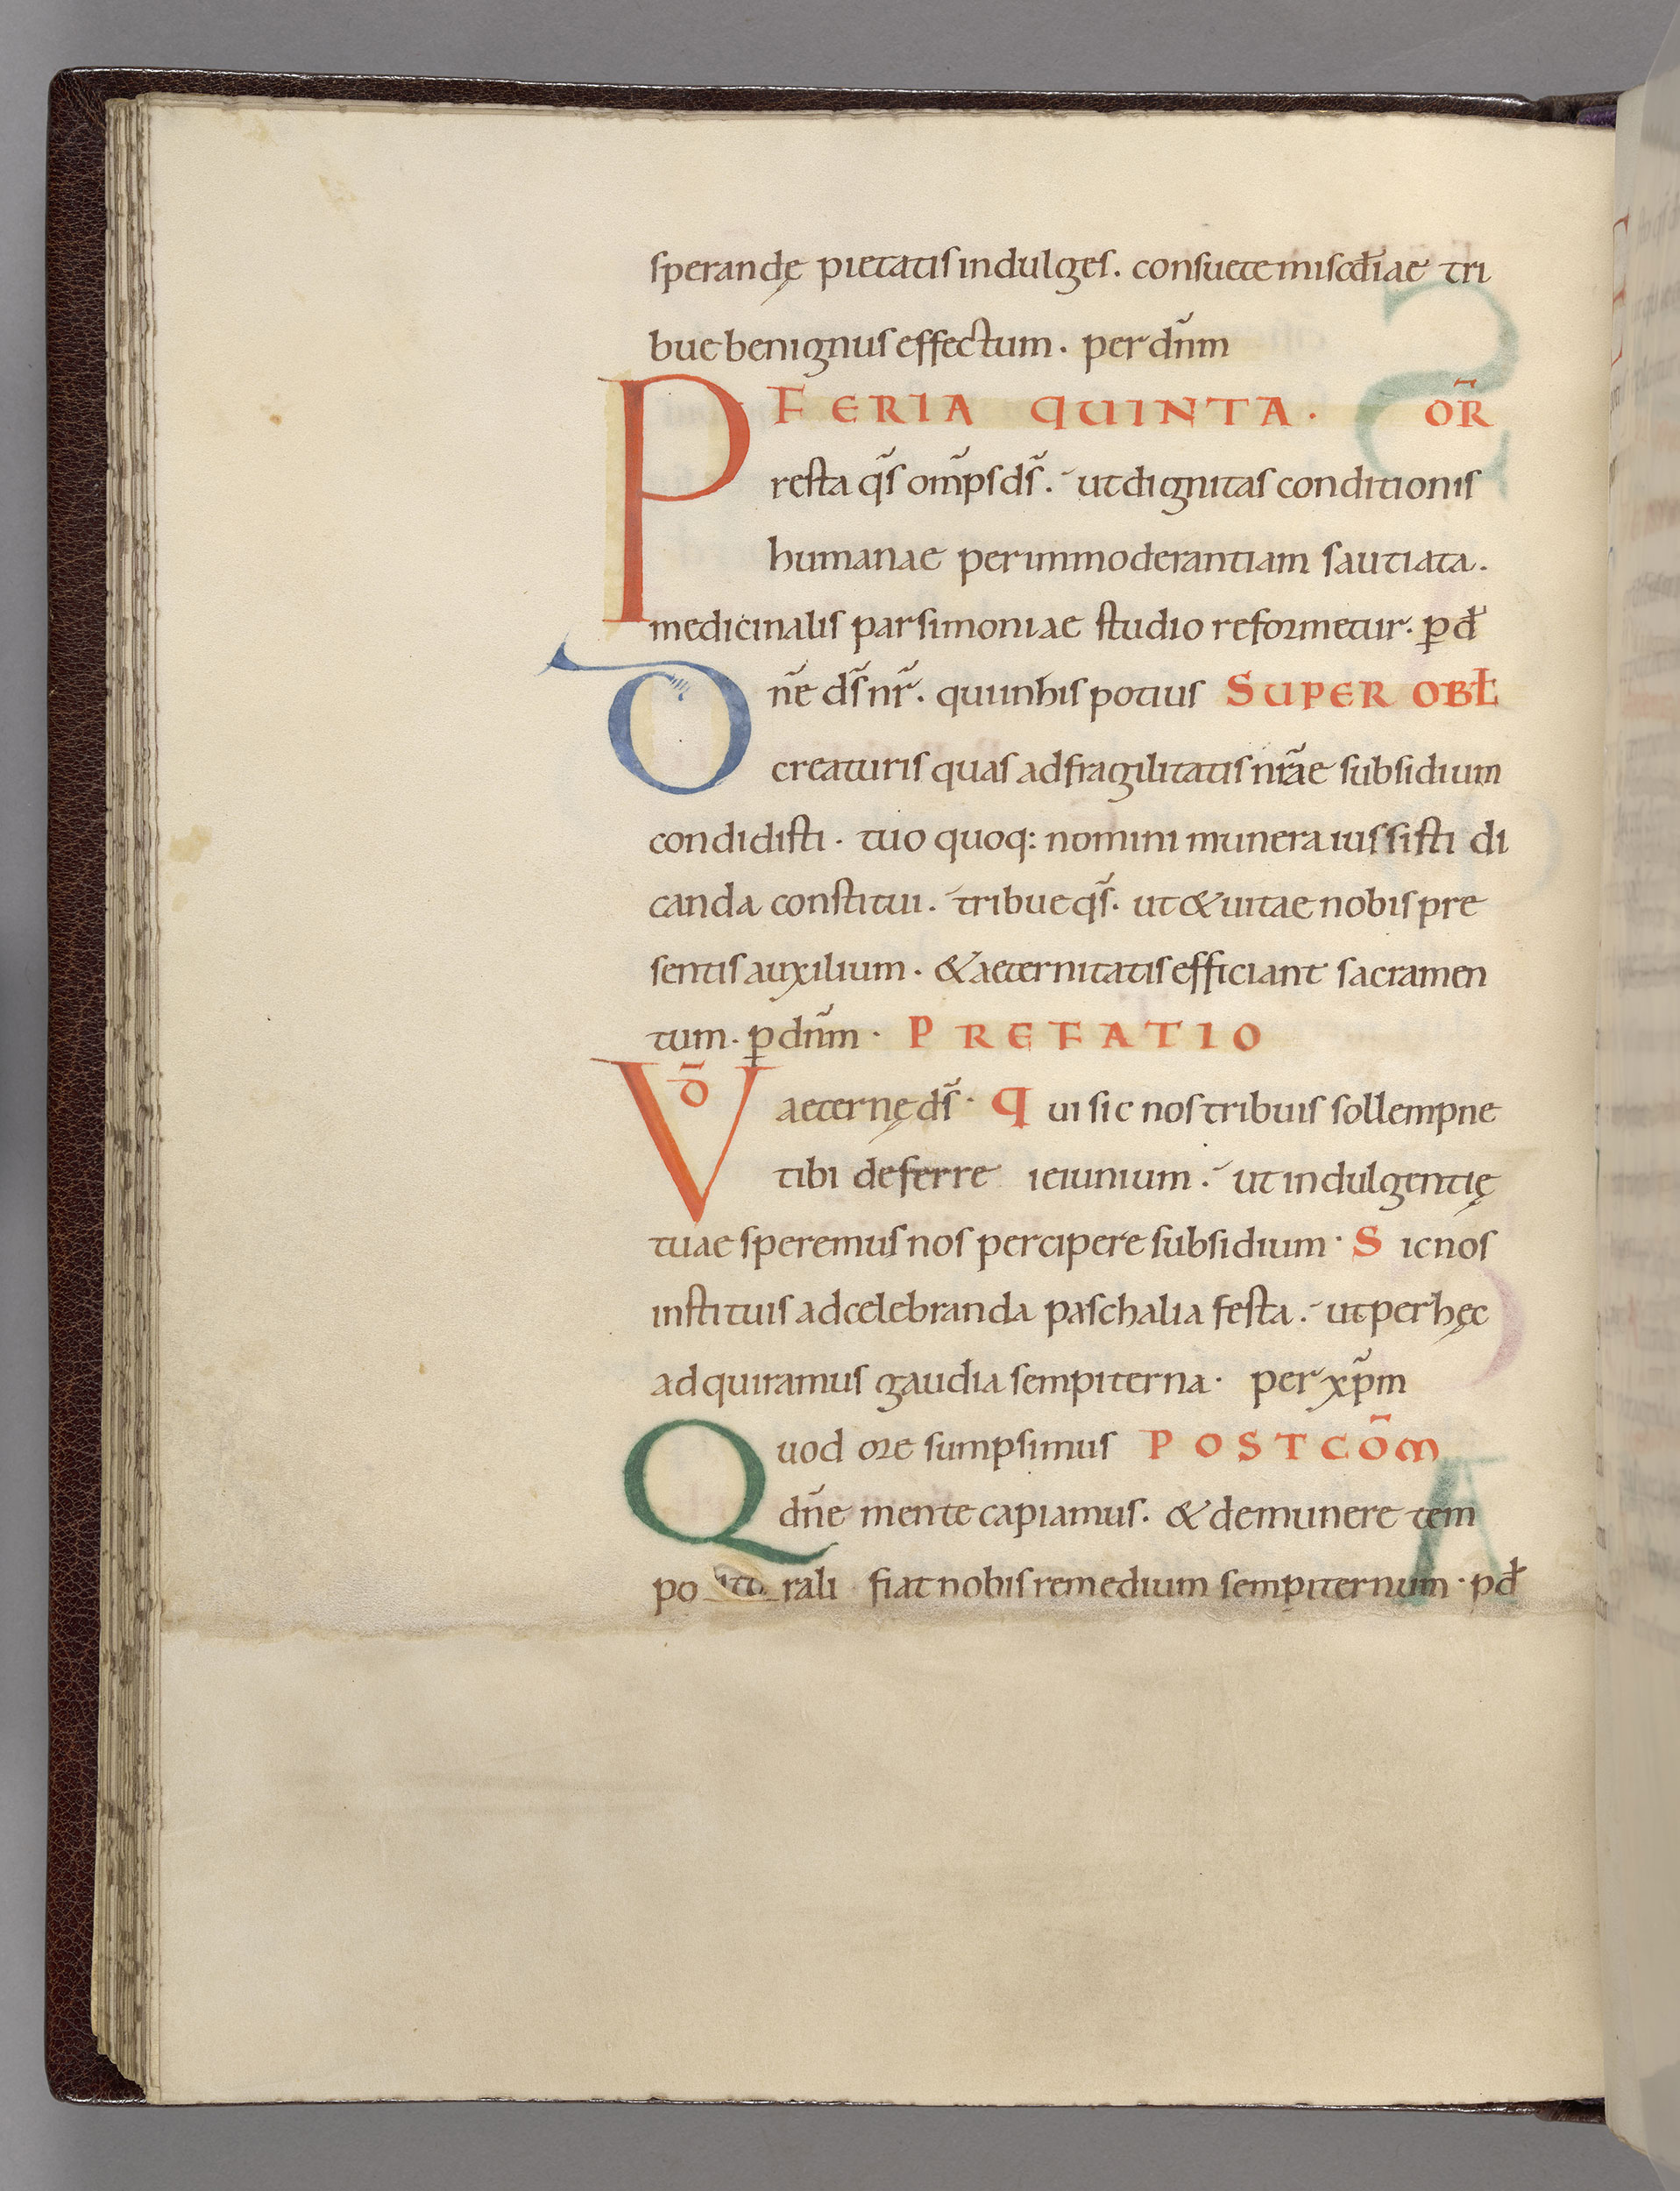 sperandę pietatis indulges. consuete miscd̄iae tri
bue benignus effectum. per dn̄m
FERIA QUINTA. OR̄
Presta qs̄ om̄ps ds̄. ut dignitas conditionis
humanae per immoderantiam sautiata.
medicinalis parsimoniae studio reformetur. ꝑ đ
Dn̄e ds̄ nr̄. qui in his potius SUPER OBŁ
creaturis quas ad fragilitatis nrāe subsidium
condidisti. tuo quoq: nomini munera iussisti di
canda constitui. tribue qs̄. ut & uitae nobis pre
sentis auxilium. & aeternitatis efficiant sacramen
tum. ꝑ dn̄m. PREFATIO
VD̄ aeternę ds̄. Qui sic nos tribuis sollempne
tibi deferre ieiunium. ut indulgentię
tuae speremus nos percipere subsidium. Sic nos
instituis ad celebranda paschalia festa. ut per hęc
adquiramus gaudia sempiterna. per xp̄m
Quod ore sumpsimus POSTCOM̄
dn̄e mente capiamus. & de munere tem
po rali fiat nobis remedium sempiternum. p đ